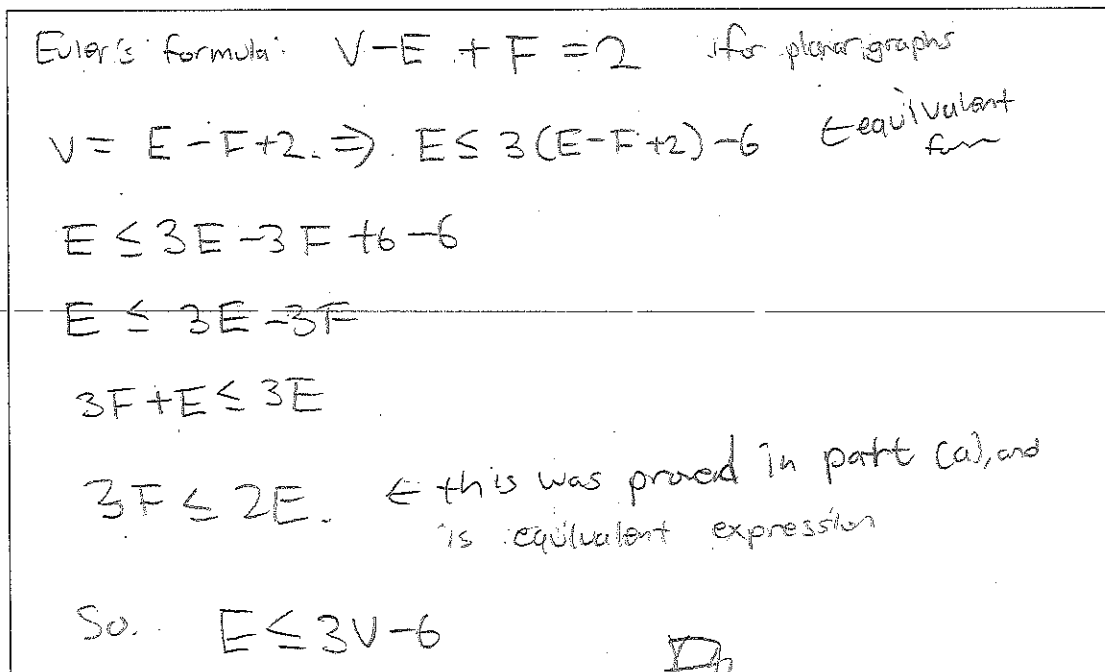 Euler's formula: V - E + F = 2 for planar graphs
V = E - F + 2. ⇒ E ≤ 3(E - F + 2) - 6 ← equivalent form
E ≤ 3E - 3F + 6 - 6
E ≤ 3E - 3F
3F + E ≤ 3E
3F ≤ 2E. ← this was proved in part (a), and
is equivalent expression
So. E ≤ 3V - 6